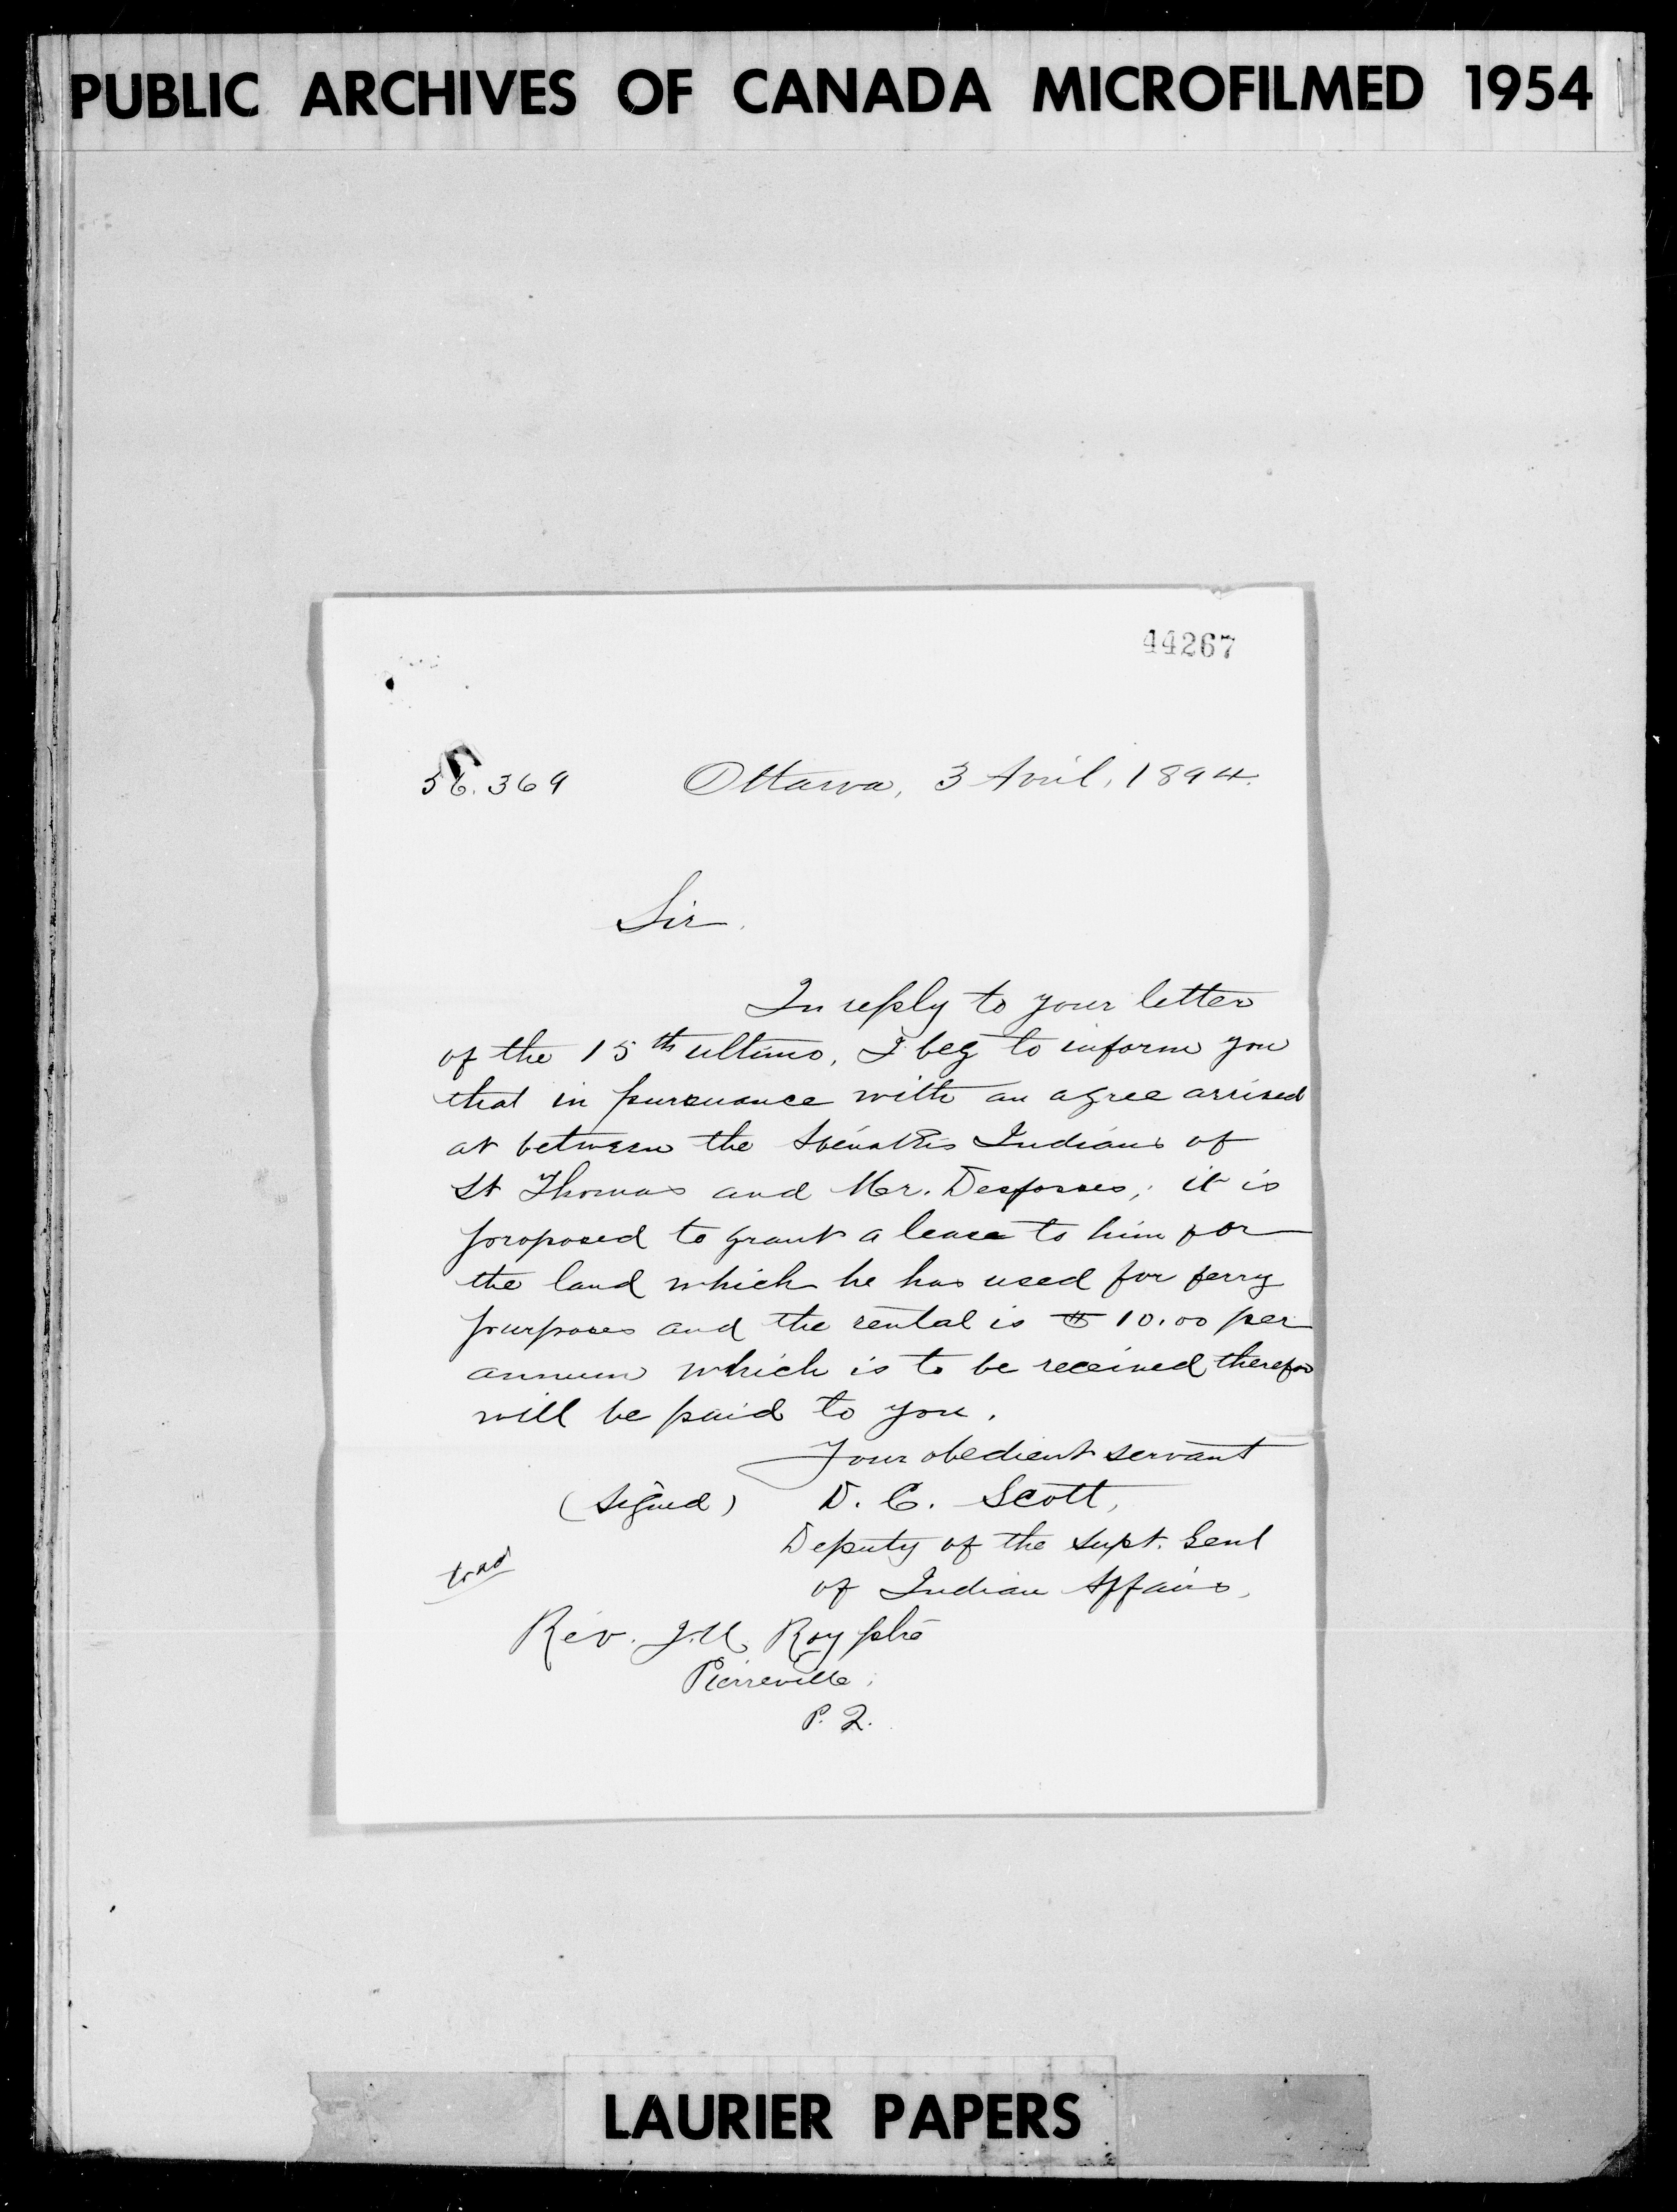 PUBLIC ARCHIVES OF CANADA MICROFILMED 1954
44267
56.369 Ottawa, 3 Avril, 1894.
Sir.
In reply to your letter
of the 15th ultimo, I beg to inform you
that in pursuance with an agree arrived
at between the Abénakis Indians of
St Thomas and Mr. Desfosses, it is
proposed to grant a lease to him for
the land which he has used for ferry
purposes and the rental is $10.00 per
annum which is to be received therefor
will be paid to you.
Your obedient servant
(Signed) D. C. Scott,
Deputy of the Supt. Genl
of Indian Affairs,
Rév. J. Roy ptre
Pierreville,
P. Q.
LAURIER PAPERS